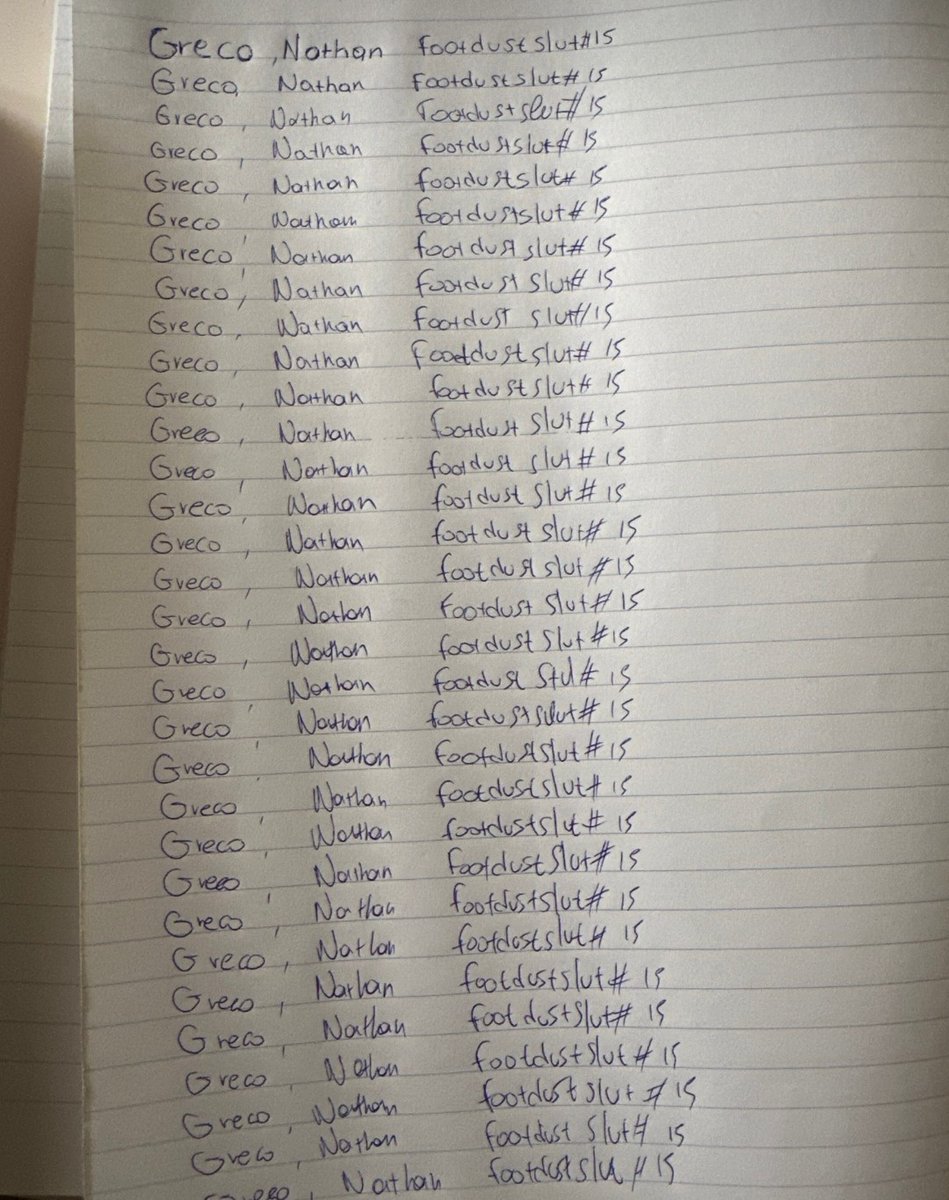 Greco , Nathan footdustslut#15
Greco, Nathan footdustslut# 15
Greco , Nathan footdustslut# 15
Greco , Nathan footdustslut# 15
Greco , Nathan footdustslut# 15
Greco , Nathan footdustslut# 15
Greco , Nathan footdust slut# 15
Greco , Nathan footdust slut# 15
Greco , Nathan footdust slut# 15
Greco , Nathan footdustslut# 15
Greco , Nathan footdustslut# 15
Greco , Nathan footdust slut# 15
Greco , Nathan footdust slut# 15
Greco , Nathan footdust slut# 15
Greco , Nathan footdust slut# 15
Greco , Nathan footdust slut #15
Greco , Nathan footdust slut# 15
Greco , Nathan footdust slut #15
Greco , Nathan footdust Stul# 15
Greco , Nathan footdustslut# 15
Greco , Nathan footdustslut# 15
Greco , Nathan footdustslut# 15
Greco , Nathan footdustslut# 15
Greco , Nathan footdustslut# 15
Greco , Nathan footdustslut# 15
Greco , Nathan footdustslut# 15
Greco , Nathan footdustslut# 15
Greco , Nathan footdustslut# 15
Greco , Nathan footdustslut# 15
Greco , Nathan footdust slut # 15
Greco , Nathan footdust slut# 15
Greco , Nathan footdustslut # 15